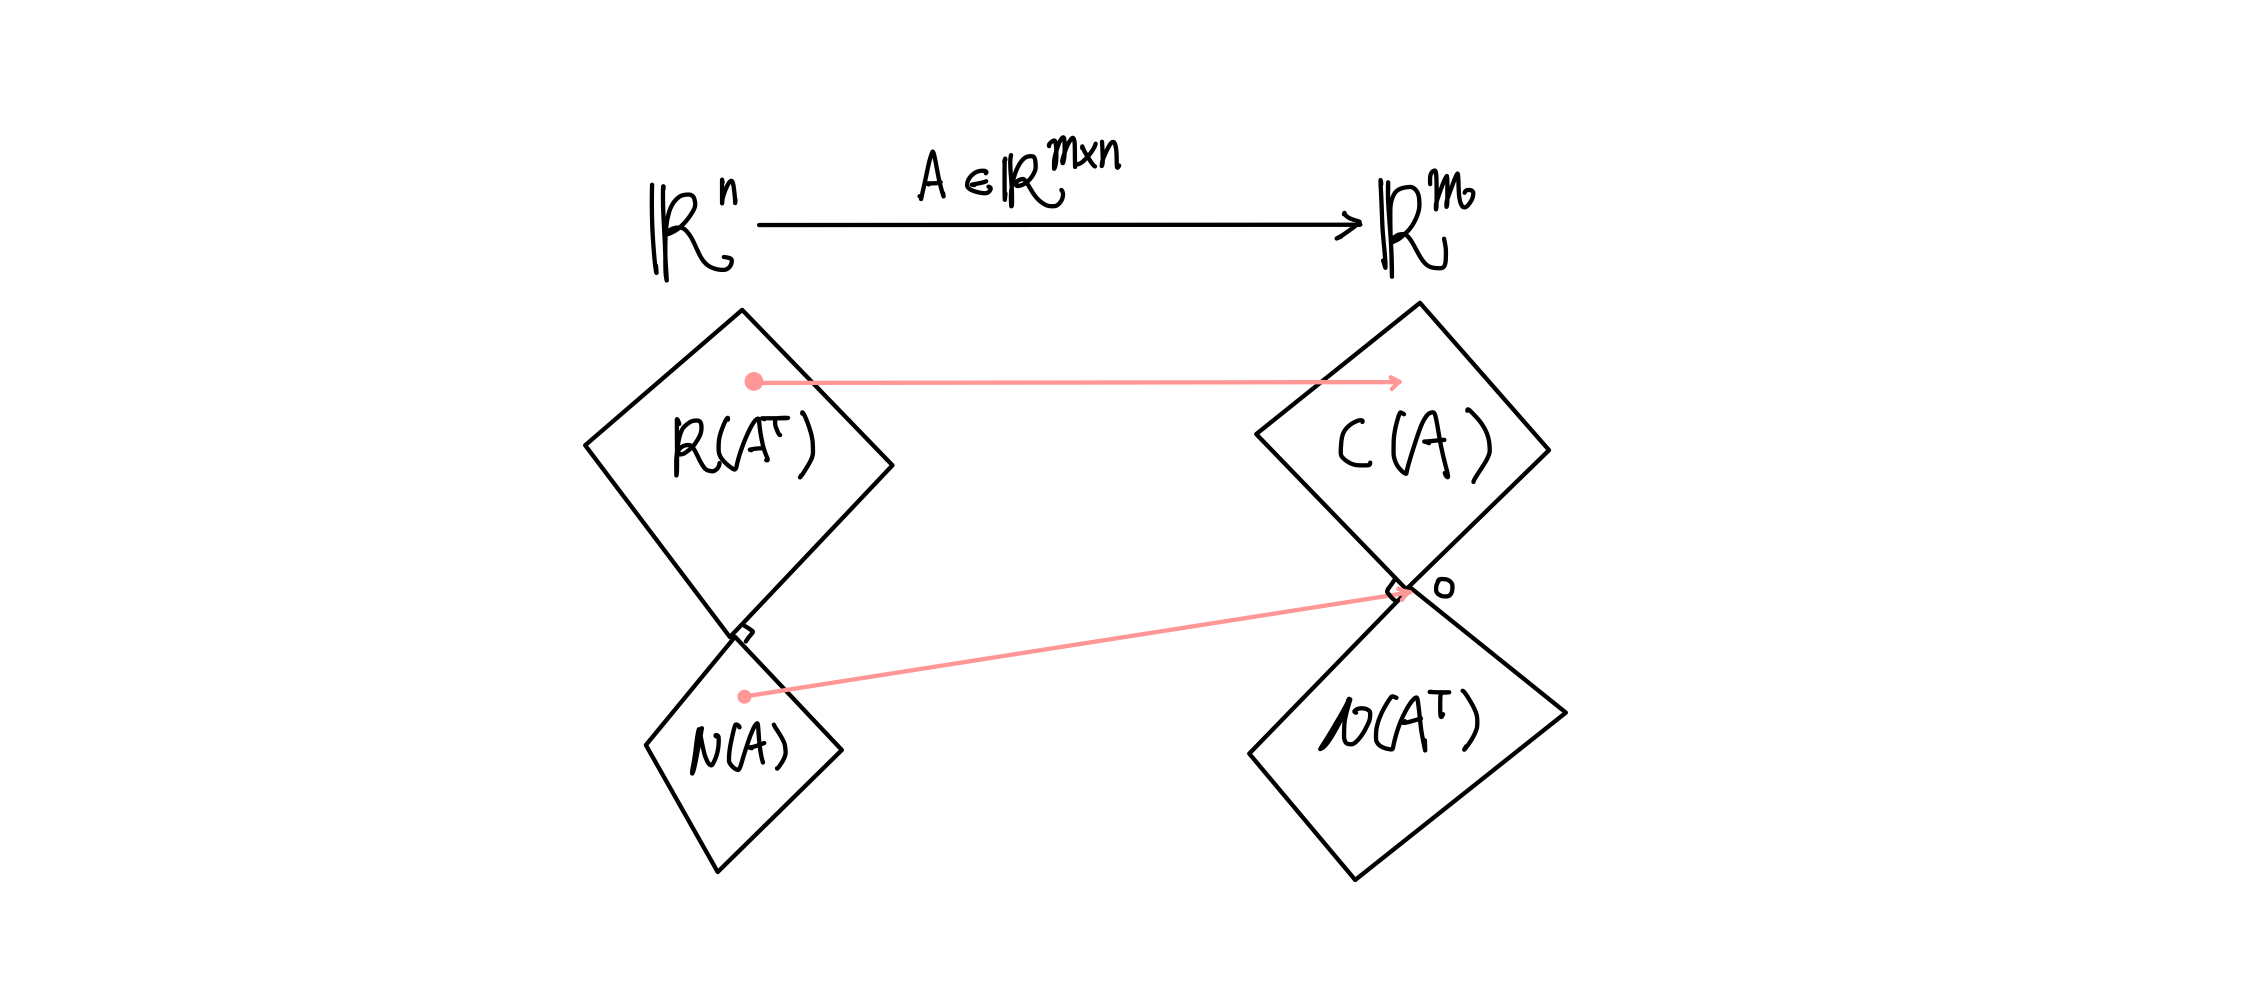 ℝⁿ A ∈ ℝᵐˣⁿ ℝᵐ
R(Aᵀ) C(A)
0
N(A) N(Aᵀ)